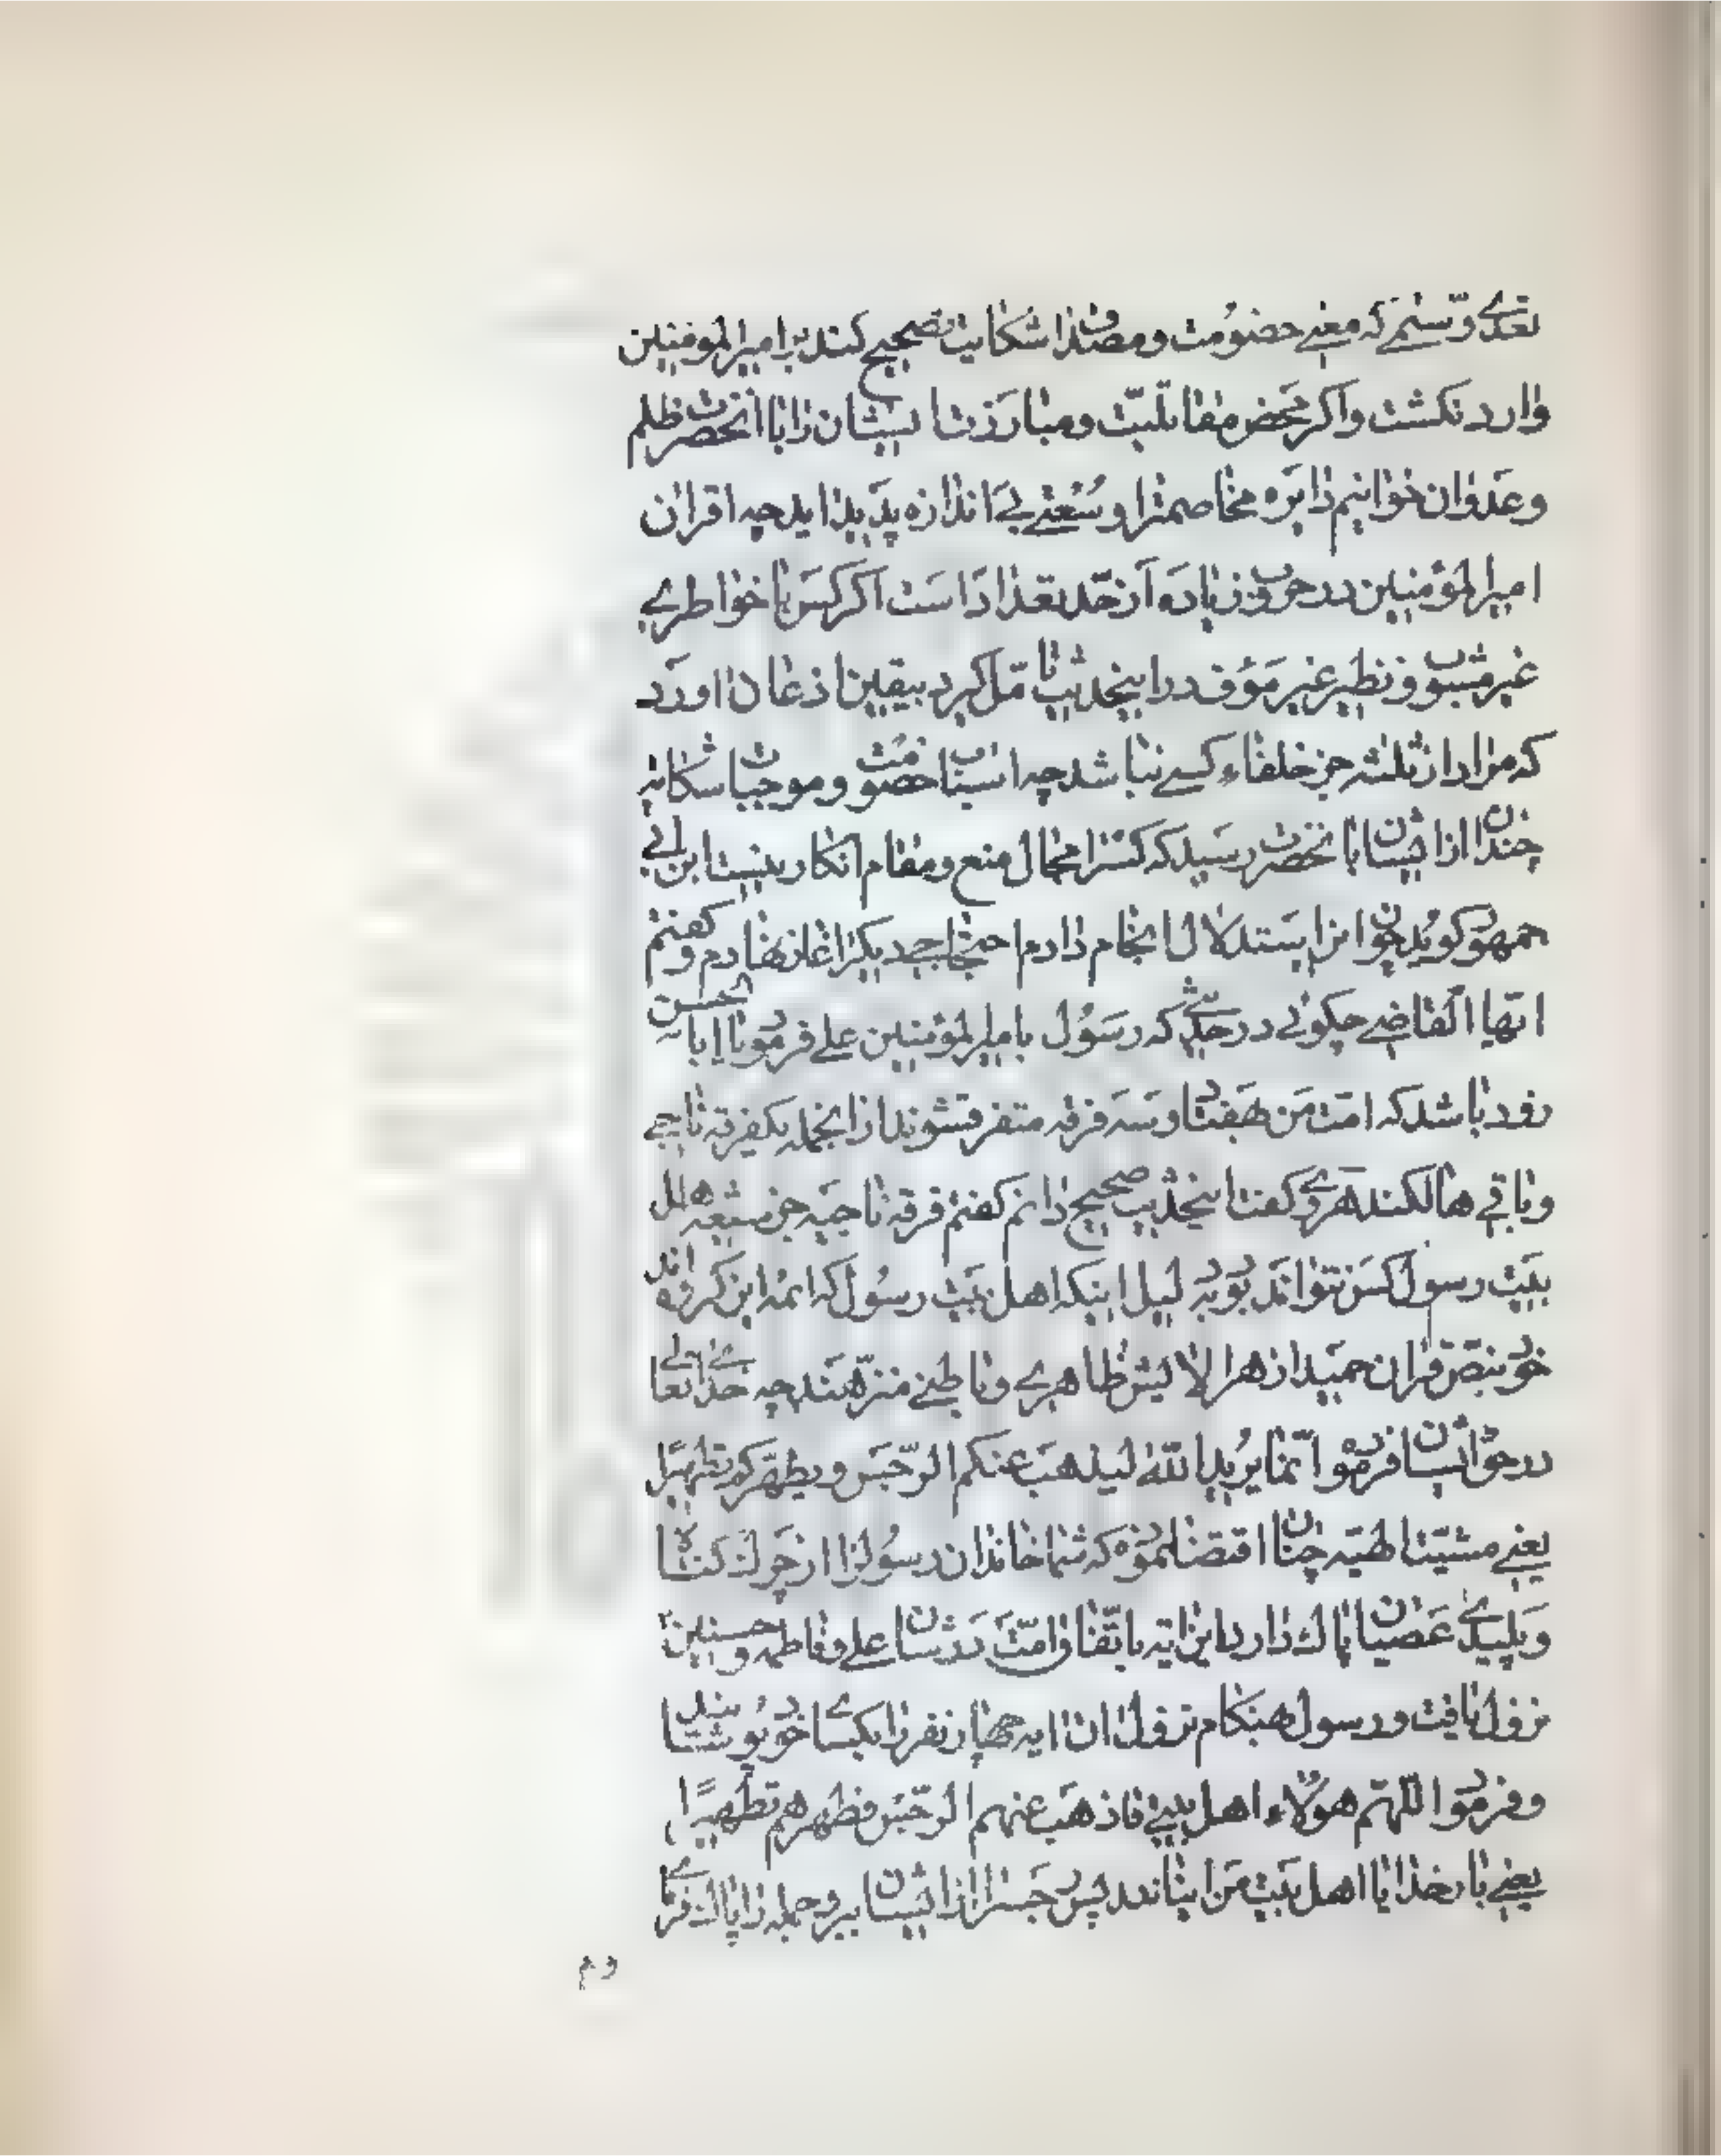 تعدّی و ستم که معنی خصومت و مصداق شکایت تصحیح کند بر امیرالمومنین
وارد نکشت واکر محض مقاتلت و مبارزت ایشان را با انحضرت ظلم
و عدوان خوانیم دایره مخاصمترا وسعتی بی اندازه پدید اید چه اقران
امیرالمؤمنین در حروب زیاده از حدّ تعداد است اکر کس با خواطری
غیر مشوب و نظیر غیر مؤف در اینحدیث تامّل کیرد بیقین اذعان اورد
که مراد از ثلثه جز خلفاء کسی نباشد چه اسباب خصومت و موجبات شکایه
چندان از ایشان با نحضرت رسید که کسرا مجال منع و مقام انکار نیست ابن ابی
جمهور کوید چون این استدلال انجام دادم احتجاجی دیکر اغاز نهادم و کفتم
ایّها القاضی چکوئی در حدیثی که رسول با میرالمؤمنین علی فرمود یا ابا الحسن
زود باشد که امت من هفتاد و سه فرقه متفرق شوند از انجمله یکفرقه ناجی
و باقی هالکند هروی کفت اینحدیث صحیح دانم کفتم فرقه ناجیه جز شیعه اهل
بیت رسول کس نتواند بود بدلیل اینکه اهل بیت رسول که ائمه این کروه اند
خود بنصّ قران حمید از هر الایش ظاهری و باطنی منزّهند چه خدای تعالی
در حق ایشان فرموده انّما یرید اللّه لیذهب عنکم الرّجس و یطهّرکم تطهیرًا
یعنی مشیّت الهیّه چنان اقتضا نموده که شما خاندان رسول را از چرک کناه
و پلیدی عصیان پاک دارد این ایه باتّفاق امّت در شان علی و فاطمه و حسنین
نزول یافت و رسول هنکام نزول ان ایه چهار نفر را بکسای خود بپوشانید
و فرمود اللّهمّ هؤلاء اهل بیتی فاذهب عنهم الرّجس و طهرهم تطهیرًا
یعنی بار خدایا اهل بیت من اینانند پس رجس را از ایشان ببر و جمله را پاک فرمای